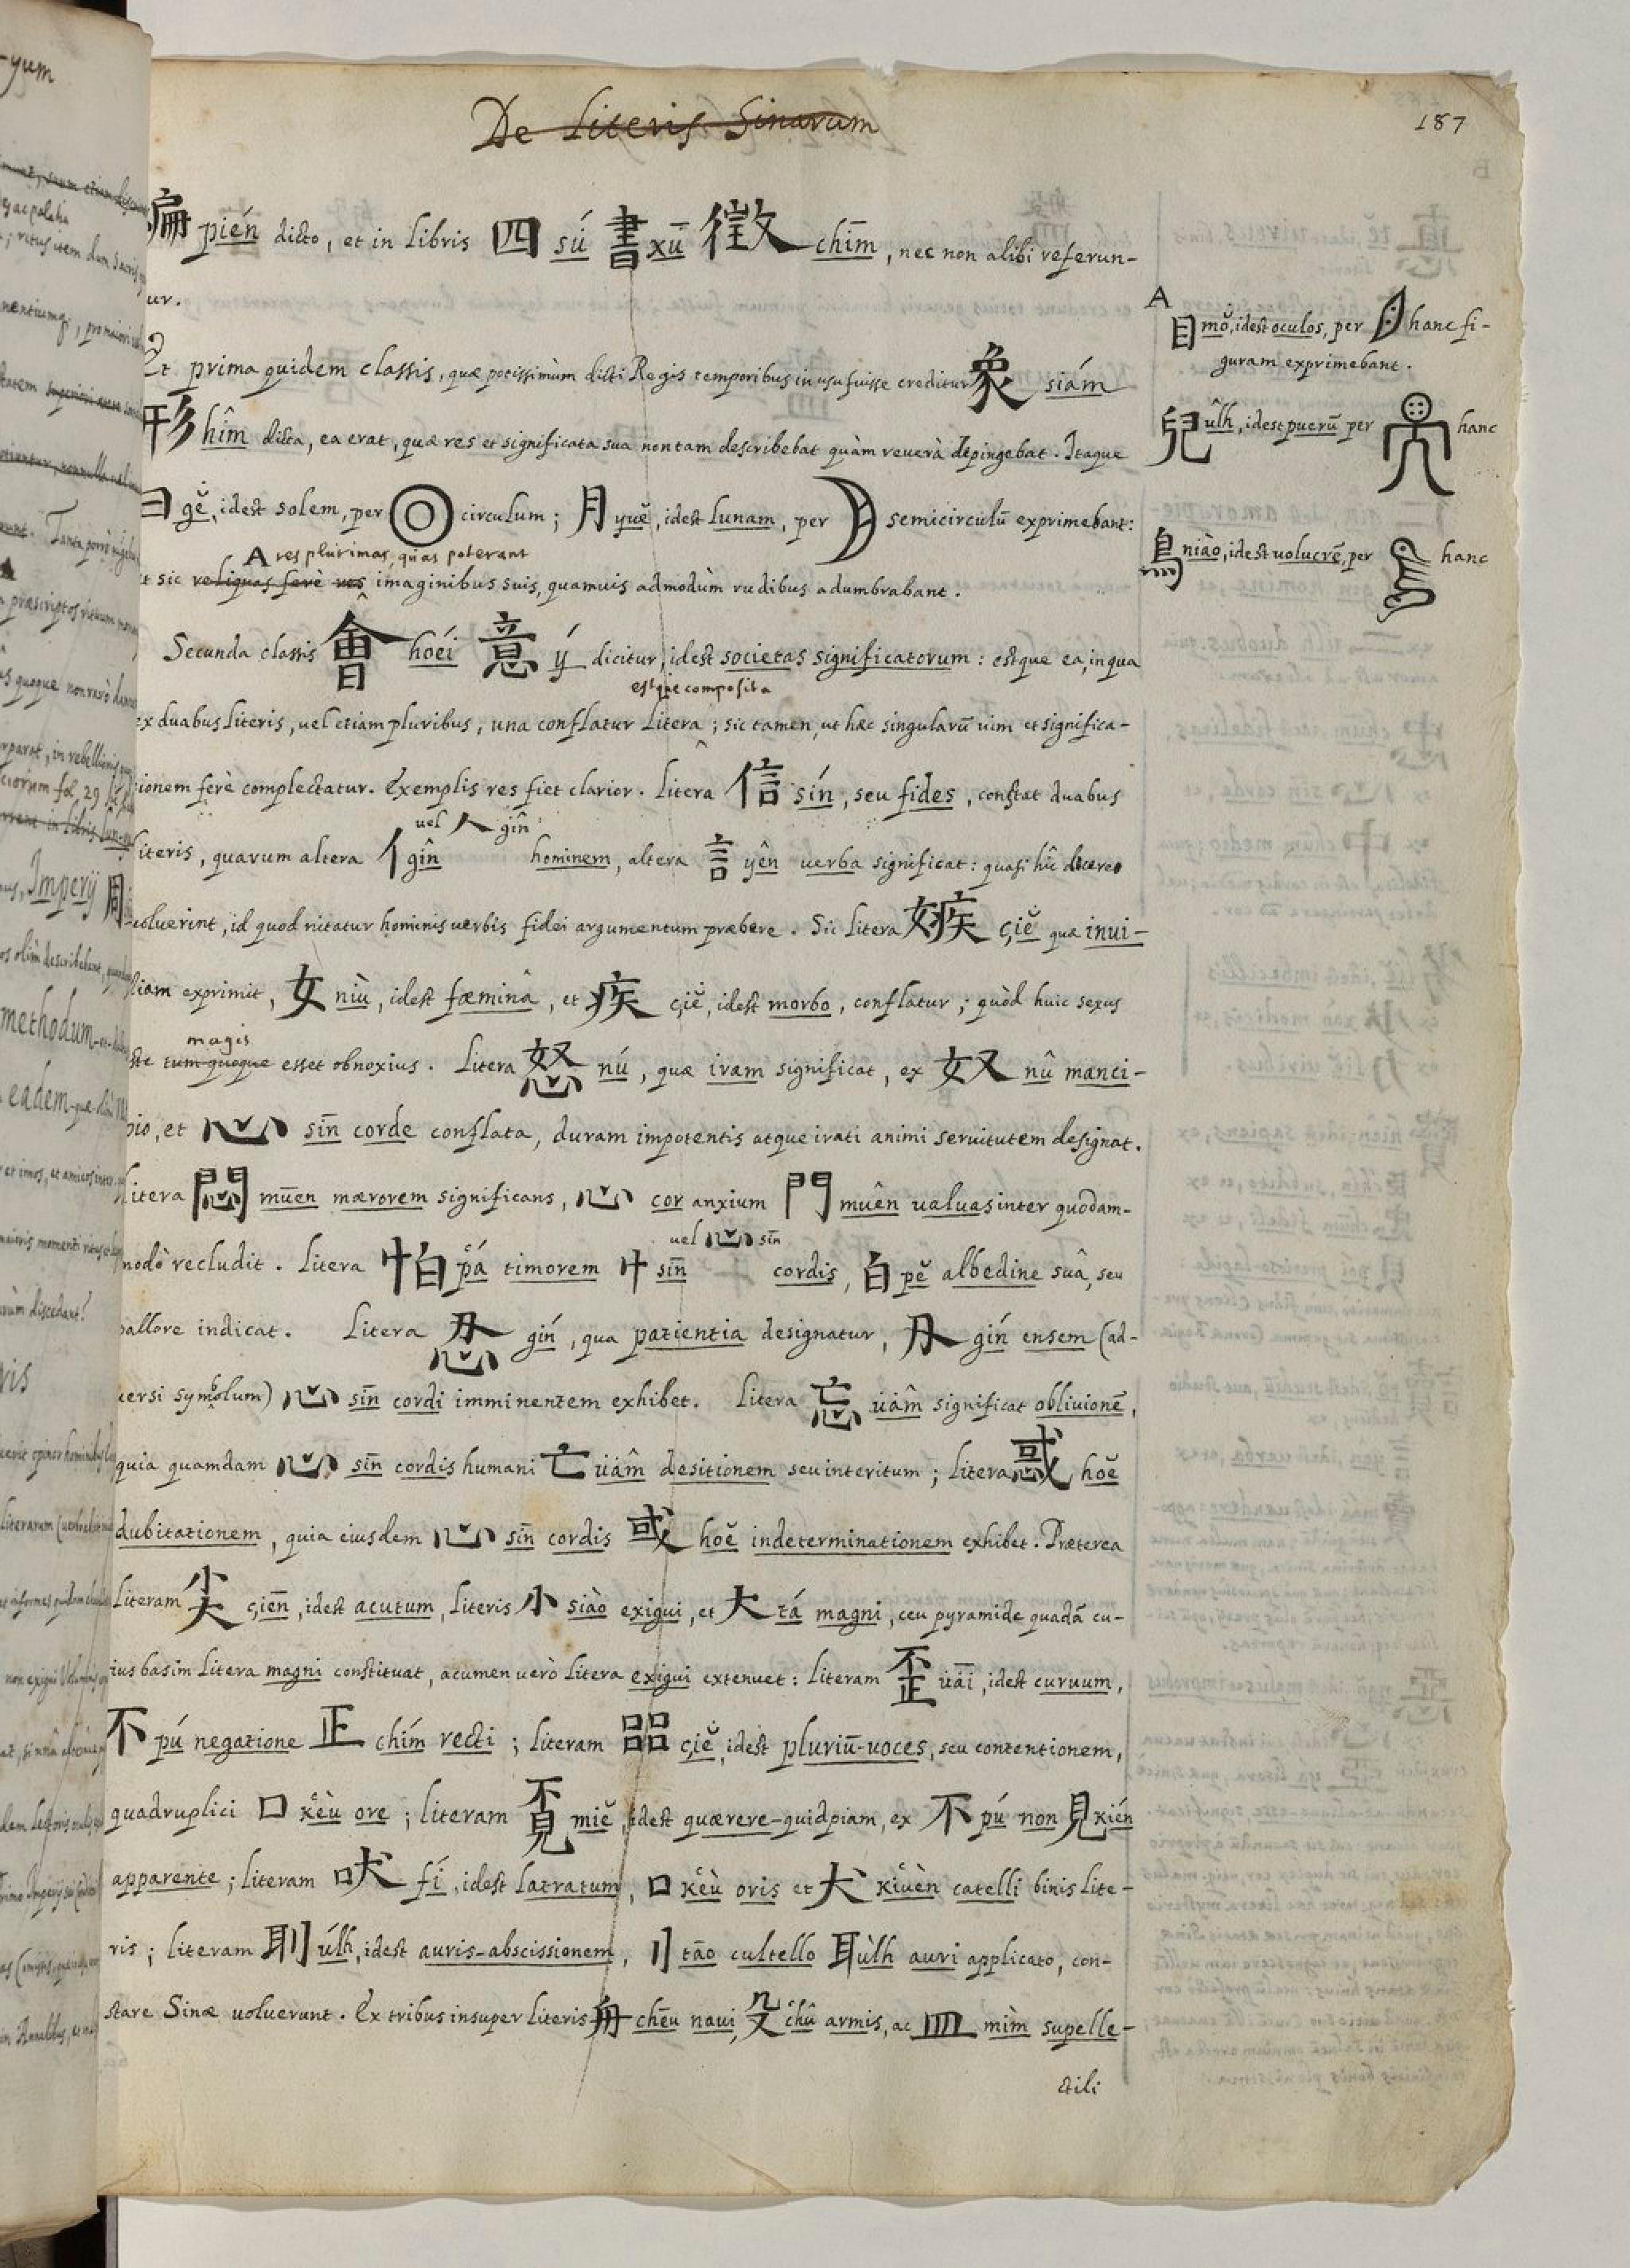 De Literis Sinarum
187
扁 pién dicto, et in libris 四 sú 書 xū 徵 chīm, nec non alibi referun-
ur.
Et prima quidem classis, quæ potissimùm dicti Regis temporibus in usu fuisse creditur 象 siám
形 hîm dicta, ea erat, quæ res et significata sua non tam describebat quàm reuerà depingebat. Itaque
日 gĕ, idest solem, per circulum; 月 yuĕ, idest lunam, per semicirculū exprimebant:
A res plurimas, quas poterant
t sic reliquas ferè res imaginibus suis, quamuis admodùm rudibus adumbrabant.
Secunda classis 會 hoéi 意 ý dicitur, idest societas significatorum: estque ea, in qua
estque composita
ex duabus literis, uel etiam pluribus, una conflatur litera; sic tamen, ut hæc singularū uim et significa-
ionem ferè complectatur. Exemplis res fiet clarior. Litera 信 sín, seu fides, constat duabus
uel 人 gîn
iteris, quarum altera 亻 gîn hominem, altera 言 yên uerba significat: quasi hîc dicere
uoluerint, id quod nitatur hominis uerbis fidei argumentum præbere. Sic litera 嫉 çiĕ quæ inui-
diam exprimit, 女 niù, idest fœminâ, et 疾 çiĕ, idest morbo, conflatur; quòd huic sexus
magis
ste tum quoque esset obnoxius. Litera 怒 nú, quæ iram significat, ex 奴 nû manci-
pio, et 心 sīn corde conflata, duram impotentis atque irati animi seruitutem designat.
litera 悶 muēn mærorem significans, 心 cor anxium 門 muên ualuas inter quodam-
uel 心 sīn
modò recludit. Litera 怕 pʿá timorem 忄 sīn cordis, 白 pĕ albedine suâ, seu
pallore indicat. Litera 忍 gín, qua patientia designatur, 刃 gín ensem (ad-
uersi symbolum) 心 sīn cordi imminentem exhibet. Litera 忘 üâm significat obliuionē,
quia quamdam 心 sīn cordis humani 亡 üâm desitionem seu interitum; litera 惑 hoĕ
dubitationem, quia eiusdem 心 sīn cordis 或 hoĕ indeterminationem exhibet. Præterea
Literam 尖 çiēn, idest acutum, literis 小 siào exigui, et 大 tá magni, ceu pyramide quadā cu-
ius basim litera magni constituat, acumen uerò litera exigui extenuet: literam 歪 üāi, idest curuum,
不 pú negatione 正 chím recti; literam 㗊 çiĕ, idest pluriū-uoces, seu contentionem,
quadruplici 口 kʿèu ore; literam 覔 miĕ, idest quærere-quidpiam, ex 不 pú non 見 kién
apparente; literam 吠 fí, idest latratum, 口 kʿèu oris et 犬 kʿiuèn catelli binis lite-
ris; literam 刵 úlh, idest auris-abscissionem, 刂 tāo cultello 耳 ùlh auri applicato, con-
stare Sinæ uoluerunt. Ex tribus insuper literis 舟 chēu naui, 殳 chʿû armis, ac 皿 mìm supelle-
ctili
A
目 mŏ, idest oculos, per hanc fi-
guram exprimebant.
兒 ûlh, idest puerū per hanc
鳥 niào, idest uolucrē, per hanc